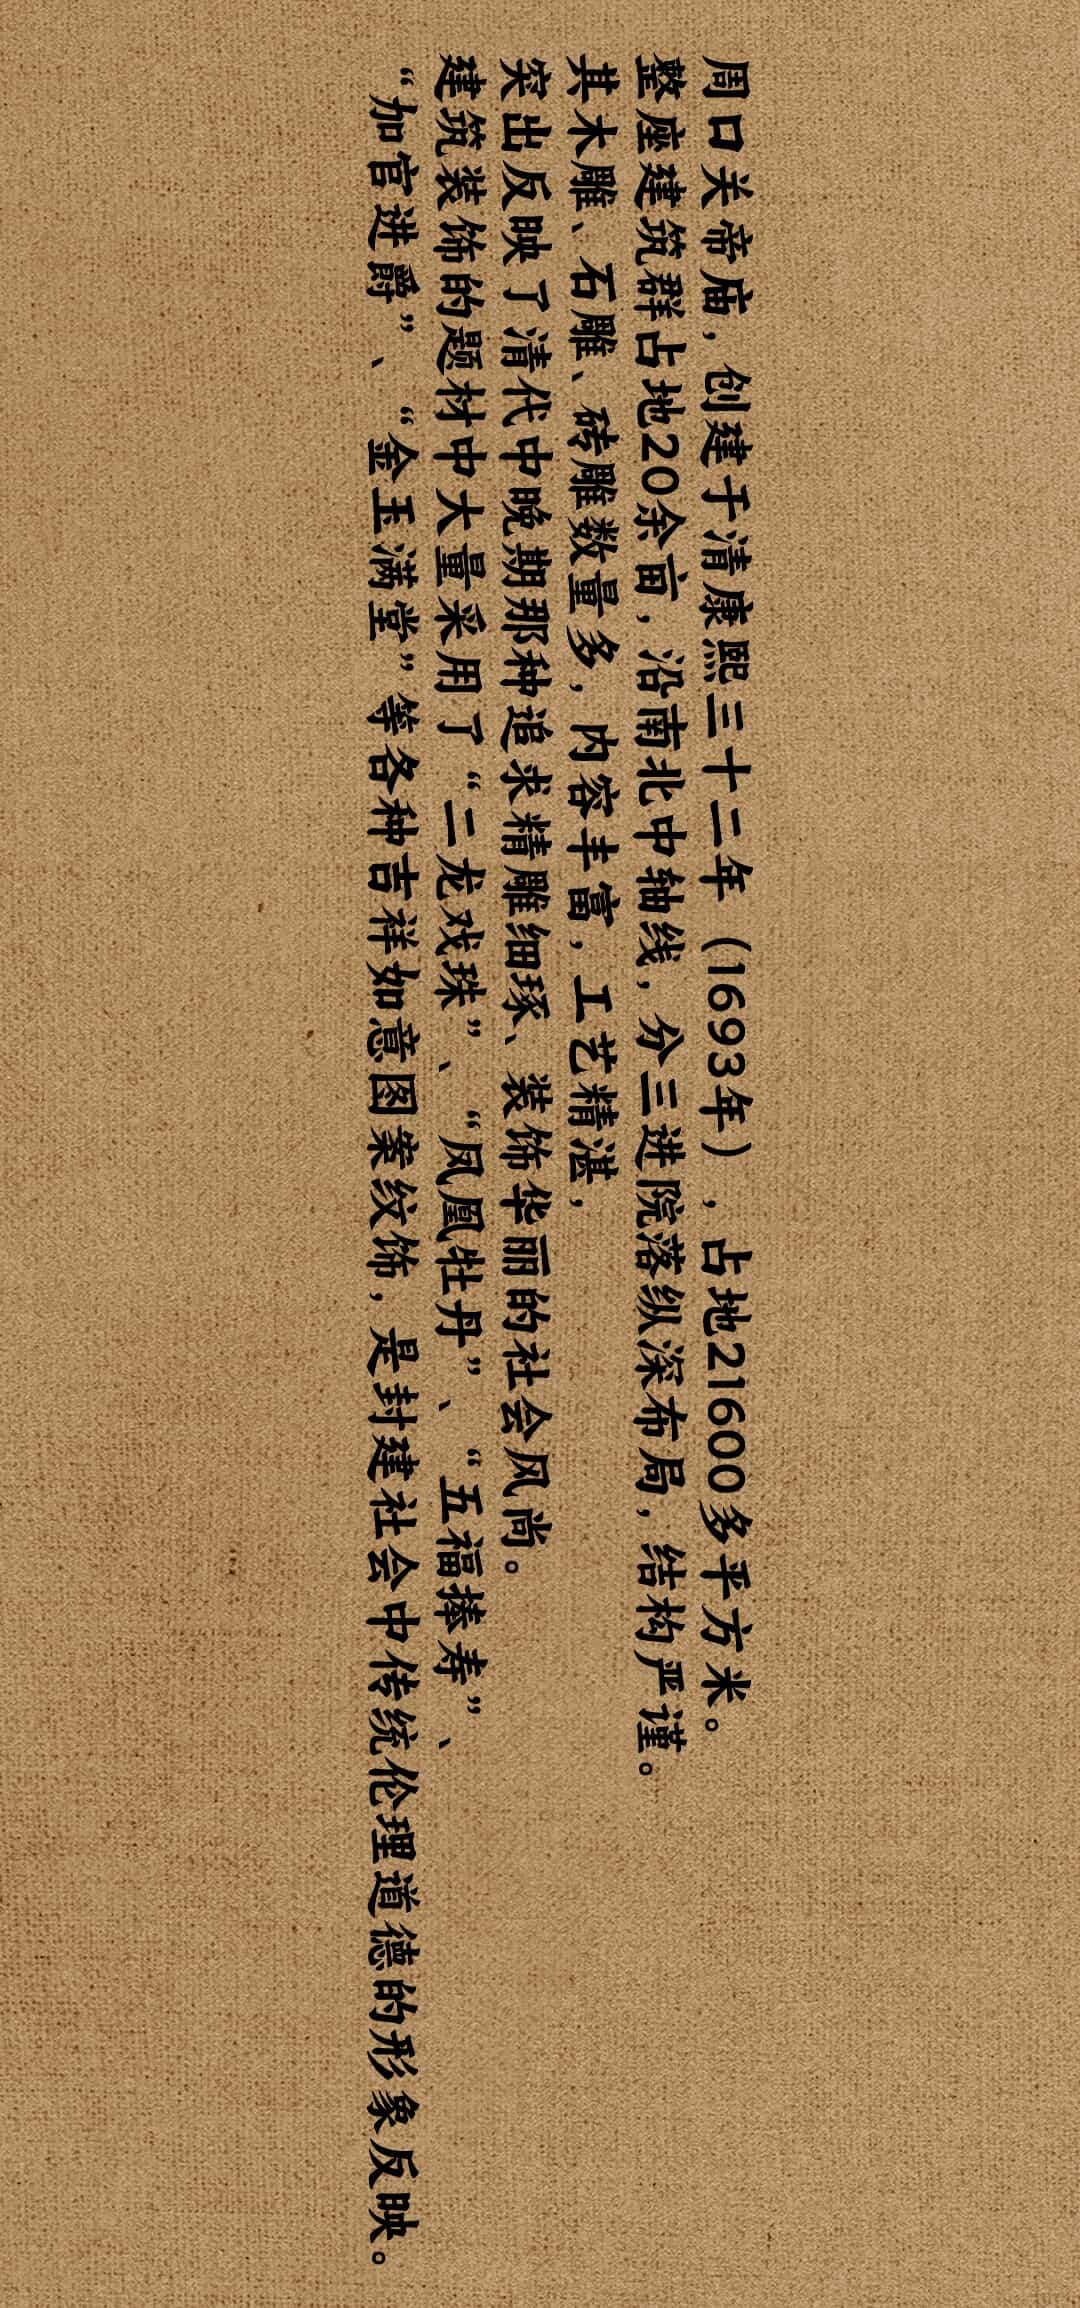 周口关帝庙，创建于清康熙三十二年（1693年），占地21600多平方米。
整座建筑群占地20余亩，沿南北中轴线，分三进院落纵深布局，结构严谨。
其木雕、石雕、砖雕数量多，内容丰富，工艺精湛，
突出反映了清代中晚期那种追求精雕细琢、装饰华丽的社会风尚。
建筑装饰的题材中大量采用了“二龙戏珠”、“凤凰牡丹”、“五福捧寿”、
“加官进爵”、“金玉满堂”等各种吉祥如意图案纹饰，是封建社会中传统伦理道德的形象反映。